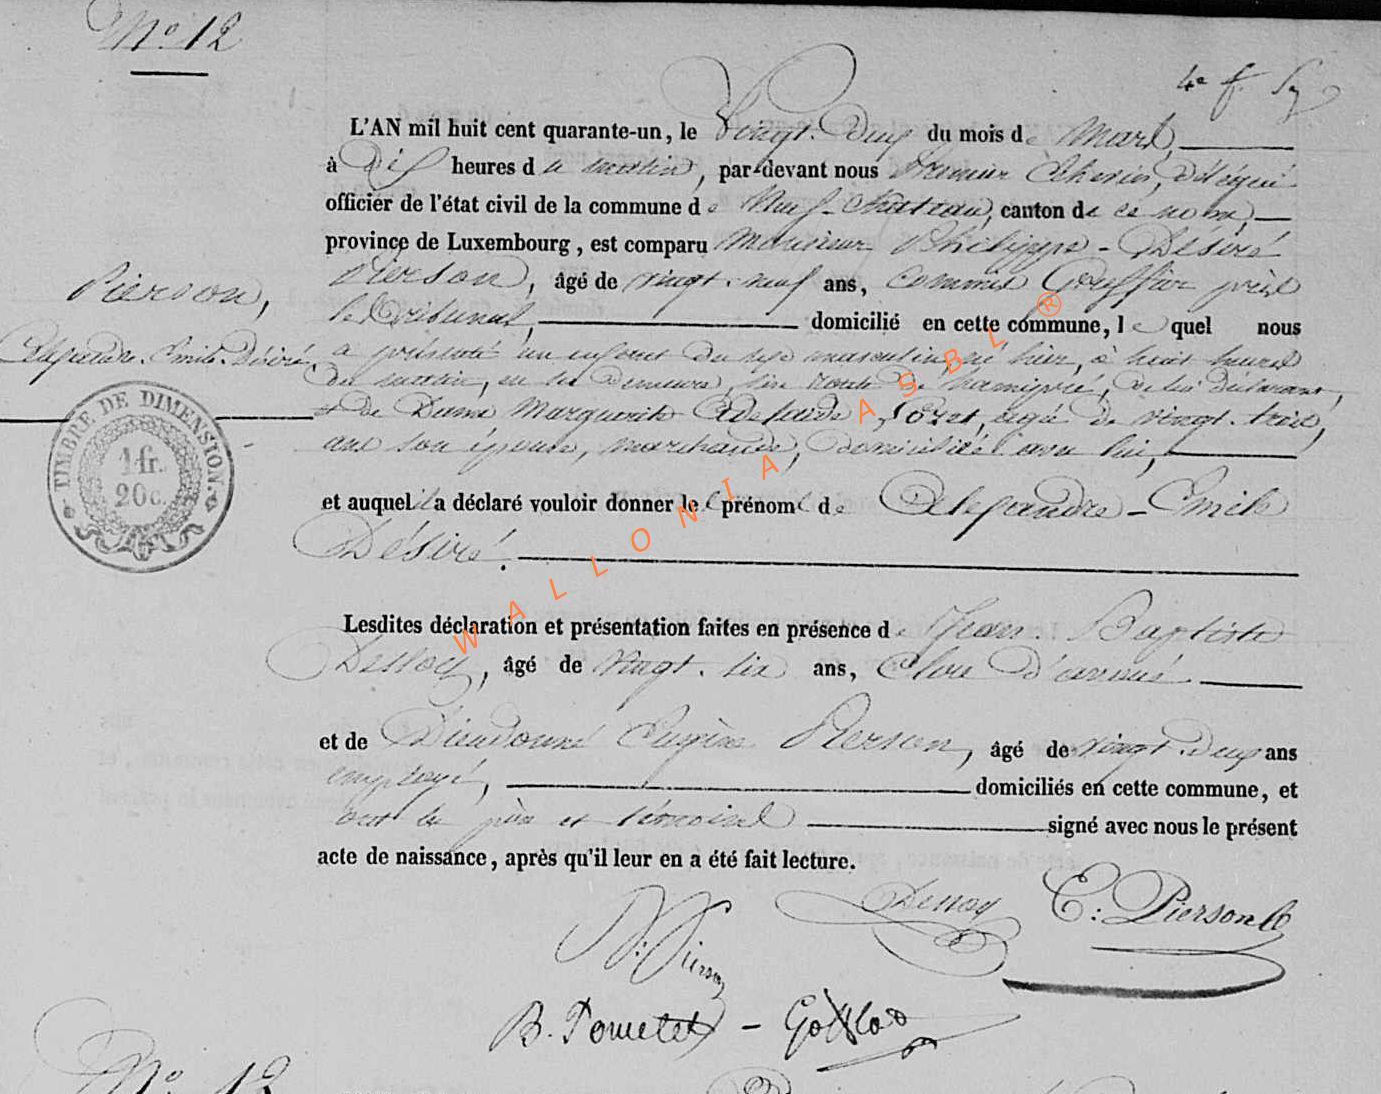 No 12
4e f.
L'AN mil huit cent quarante-un, le Vingt-Deux du mois de Mars,
à Dix heures du matin, par-devant nous premier Echevin, délégué
officier de l'état civil de la commune de Neuf-château, canton de ce nom,
province de Luxembourg, est comparu Monsieur Philippe-Désiré
Pierson, âgé de vingt-neuf ans, commis Greffier près
Pierson,
le Tribunal, domicilié en cette commune, le quel nous
Alexandre-Emile-Désiré
a présenté un enfant du sexe masculin, né hier, à huit heures
du matin, en sa demeure, sise route de hamipré, de lui déclarant,
et de Dame Marguerite Adelaïde Lozet, agée de vingt-trois,
ans son épouse, marchande, domiciliée avec lui,
TIMBRE DE DIMENSION
1 fr.
20 c.
et auquel il a déclaré vouloir donner les prénoms de Alexandre-Emile
Désiré.
Lesdites déclaration et présentation faites en présence de Jean-Baptiste
Dessoy, âgé de vingt-six ans, Clerc d'avoué.
et de Dieudonné Eugène Pierson, âgé de vingt-Deux ans
employé, domiciliés en cette commune, et
ont les père et témoins signé avec nous le présent
acte de naissance, après qu'il leur en a été fait lecture.
Dessoy E: Pierson
D: Pierson
B. Pomclet - Gollao
No 13
WALLONIA ASBL ®